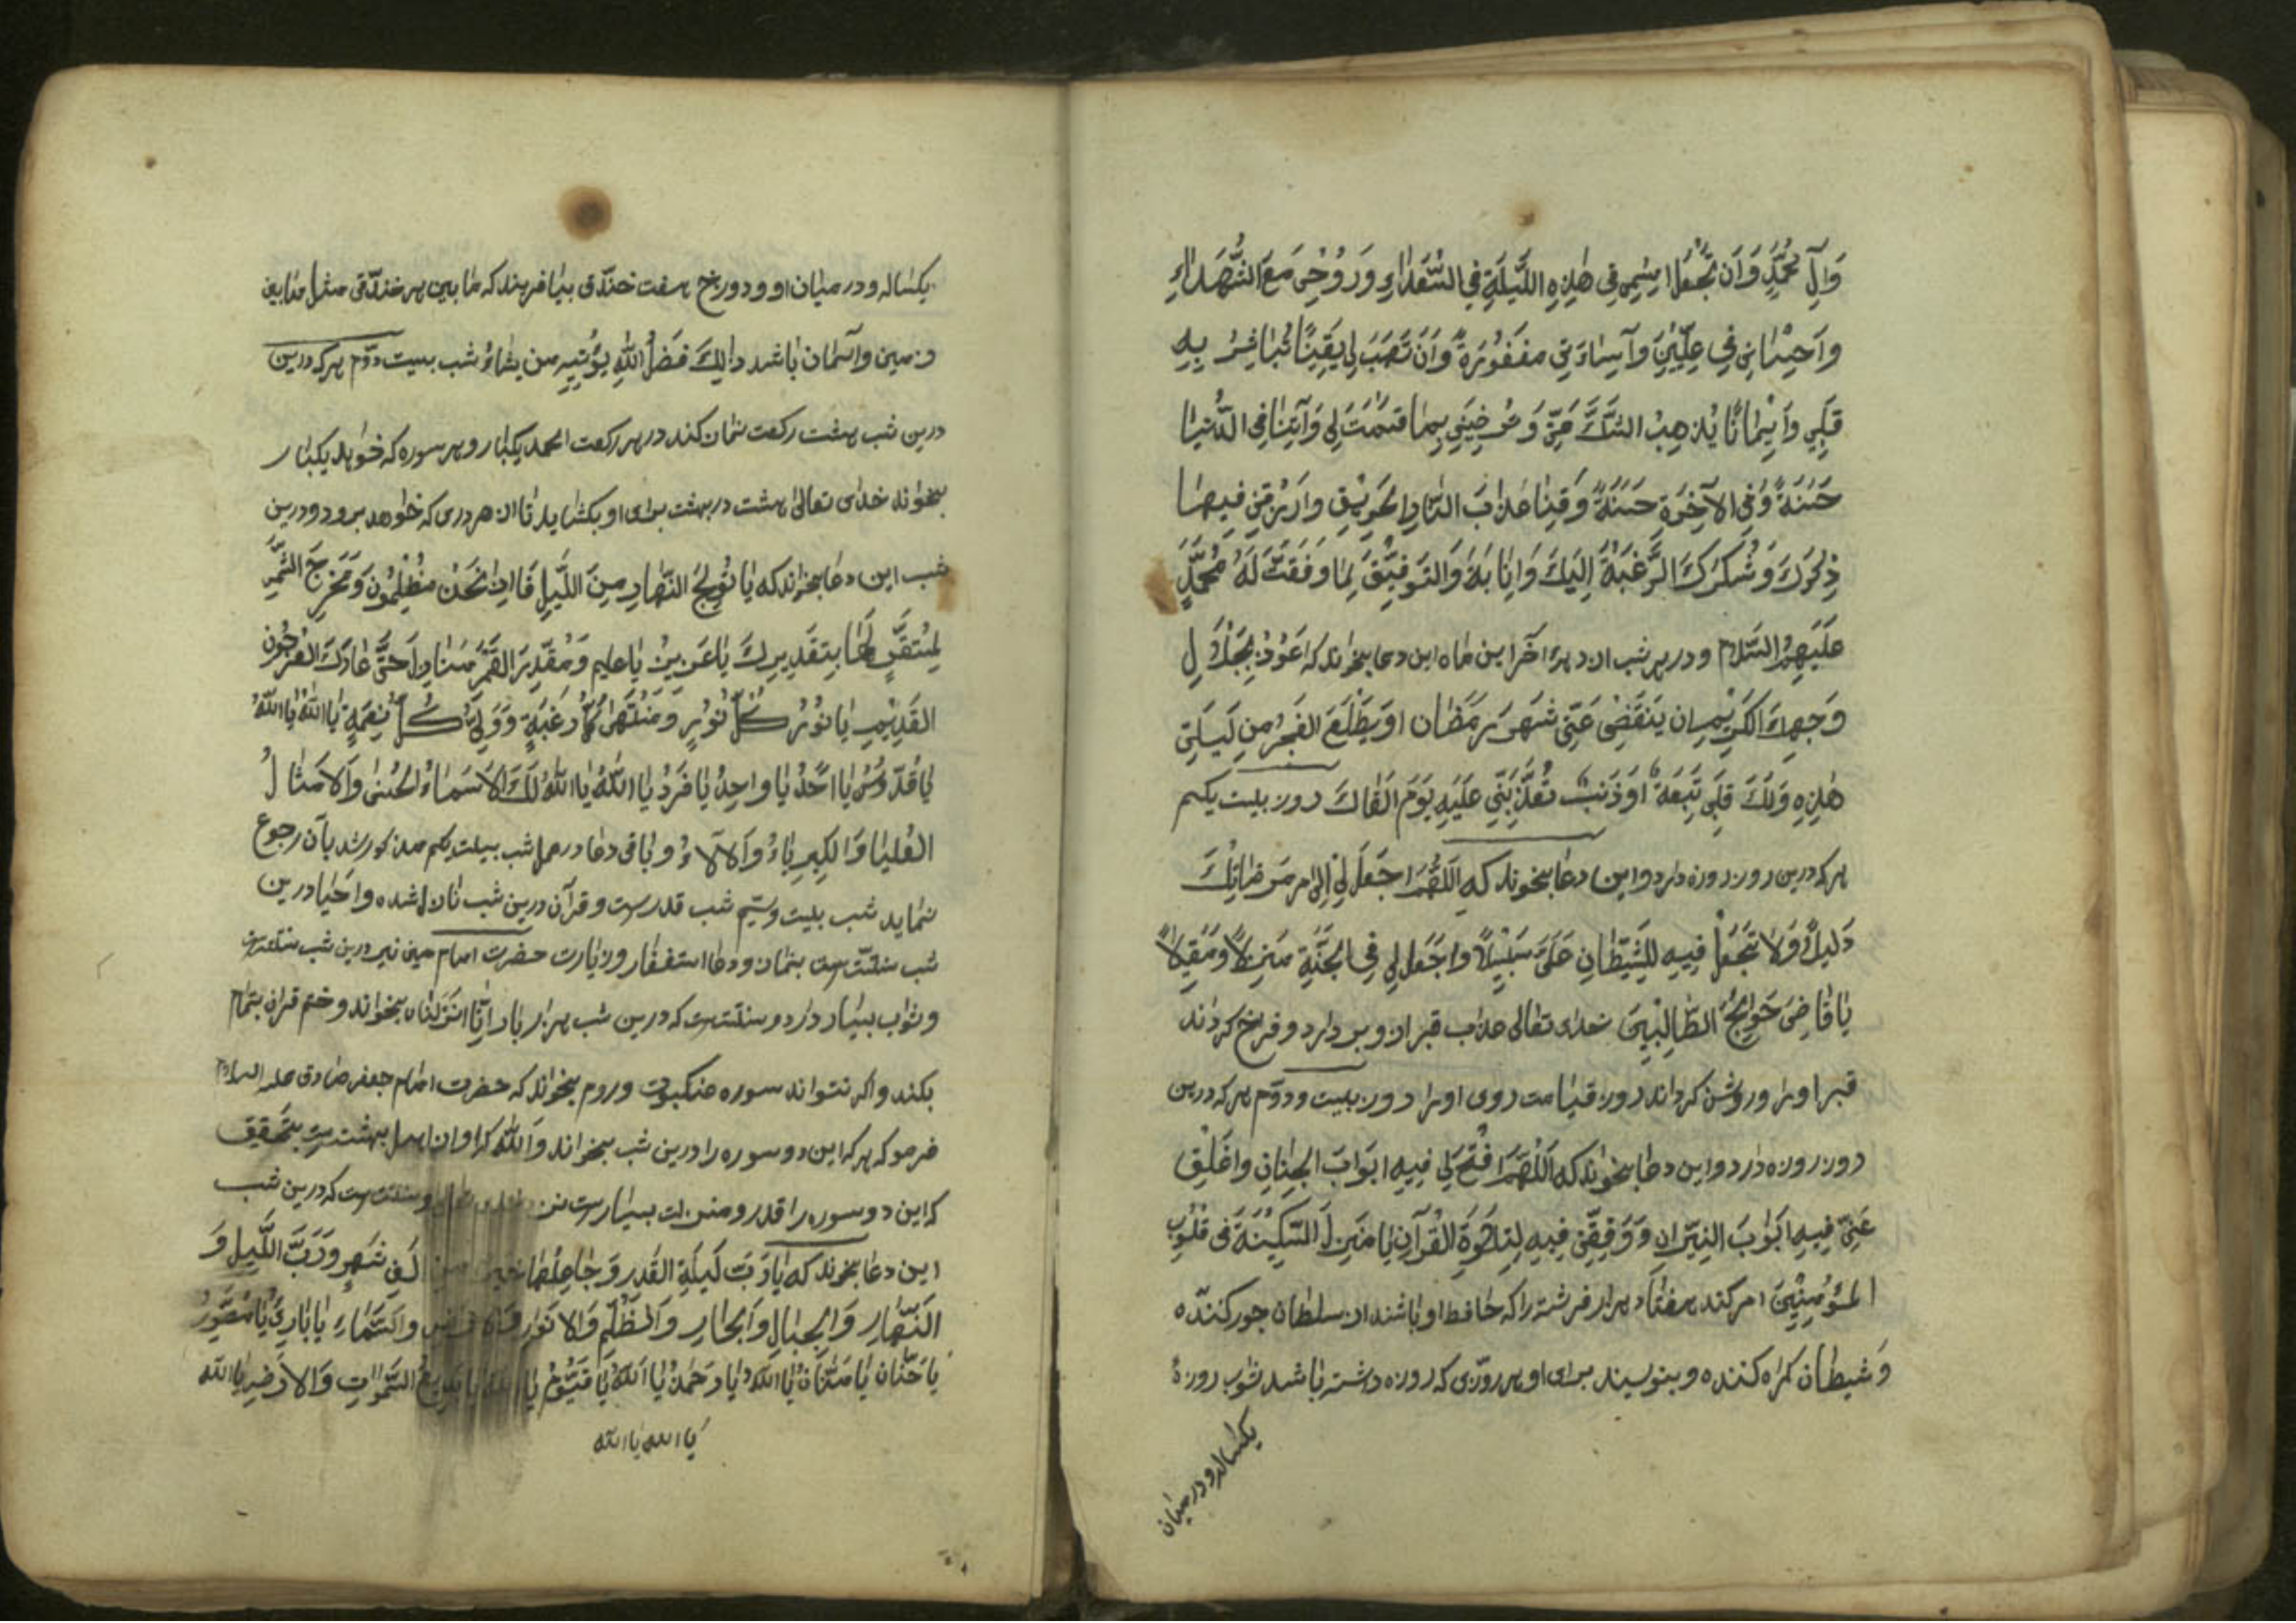 وَآلِ مُحَمَّدٍ وَاَن تَجْعَلَ اِسْمِی فِی هٰذِهِ اللَّیلَةِ فِی السُّعَدٰاءِ وَرُوْحِی مَعَ الشُّهَدٰاءِ
وَاَحِسٰانِی فِی عِلِّیّینَ وَاَسِاءَتِی مغفُورَةً وَاَن تَهَبَ لِی یَقِینًا تُبٰاشِرُ بِهِ
قَلبِی وَاِیْمٰانًا یُذهِبُ الشَّكَّ عَنّی وَتُرضِیَنِی بِمٰا قَسَمْتَ لِی وَآتِنٰا فِی الدُّنیٰا
حَسَنَةً وَفِی الآخِرَةِ حَسَنَةً وَقِنٰا عَذٰابَ النّٰارِ الحَرِیْقِ وارْزُقنِی فِیهٰا
ذِكرَكَ وَشُكرَكَ الرَّغبَةَ اِلَیكَ وَاِنٰابَةَ وَالتَوفِیْقَ لِمٰا وَفَقتَ لَهُ مُحَمَّدٍ
عَلَیهِمُ السَّلام ودر هر شب از دهه آخر این ماه این دعا بخواند که اَعُوْذُ بِجَلٰالِ
وَجهِكَ الكَرِیْمِ ان یَنقَضِیَ عَنّی شَهرَ رَمَضٰان اَو یَطْلَعَ الفَجرُ مِن لَیلَتِی
هٰذِهِ وَلَكَ قِبَلِی تَبِعَةً اَو ذَنبٌ تُعَذِّبَنِّی عَلَیهِ یَومَ اَلقٰاكَ روز بیست یکم
هر که درین روز روزه دارد واین دعا بخوند که اَللّهُمَّ اجعَل لِی اِلٰی مَرضٰاتِكَ
دَلِیلًا وَلاٰ تَجعَلْ فِیهِ لِلشَّیطٰانِ عَلَیَّ سَبِیْلًا وَاجعَل لِی فِی الجَنَّةِ مَنزِلًا وَمَقِیلًا
یٰا قٰاضِیَ حَوٰایِجُ الطّٰالِبِیْنَ خدای تعالی عذاب قبر از وبر دارد وفرخ کرداند
قبر اورا وروشن کرداند روز قیامت روی اورا روز بیست ودوّم هر که درین
روز روزه دارد واین دعا بخواند که اَللّهُمَّ افْتَحْ لِی فِیهِ اَبوَابَ الجِنٰانِ واغلِقْ
عَنّی فِیهِ اَبوٰابَ النِیرَانِ وَوَفِقّنِی فِیهِ لِتِلٰاوَةِ القُرآنِ یٰا مُنَزِلَ السَّكِیْنَةَ فِی قُلُوبِ
المُؤمِنِیْنَ امر کند هفتاد هزار فرشته را که حافظ او باشند از سلطان جور کننده
وَشیطان کمراه کننده وبنویسند برای او بهر روزی که روزه داشته باشد ثواب روزهٔ
یکساله ودر میان
یکساله ودر میان او ودوزخ هفت خندق بیافریند که ما بین هر خندقی مثل مابین
زمین وآسمان باشد ذالِكَ فَضلُ اللهِ یُؤتِیهِ مَن یشٰاءُ شب بیست دوّم هر که درین
درین شب هشت رکعت نماز کند در هر رکعت الحمد یکبار وهر سوره که خواهد یکبار
بخواند خدای تعالی هشت در بهشت برای او بکشاید تا از هر دری که خواهد برود ودرین
شب این دعا بخواند که یٰا مُولِجَ النَهٰارِ مِنَ اللَّیلِ فَاِذٰا نَحْنُ مُظْلِمُونَ وَمُخرِجَ الشَّمسِ
لِمُستَقَرٍّ لَهٰا بِتَقدِیرِكَ یٰا عَزِیزُ یٰا علیم وَمُقَدِّرَ القَمَرِ مَنٰازِلَ حَتّٰی عٰادَ كَالعُرجُونِ
القَدِیْمِ یٰا نُورُ كُلِّ نُورٍ وَمُنتَهیٰ كُلِّ رَغبَةٍ وَوَلِیَّ كُلِّ نِعمَةٍ یٰا اللهُ یٰا اللهُ
یٰا قُدّوسُ یٰا اَحَدُ یٰا واحِدُ یٰا فَردُ یٰا اللهُ یٰا اللهُ لَكَ الاَسمٰاءُ الحُسنٰی وَالاَمثٰالُ
العُلیٰا وَالكِبرِیٰاءُ وَالآلٰاءُ وباقی دعا در عمل شب بیست یکم مذکور شد بآن رجوع
نماید شب بیست وسیّم شب قدرست وقرآن درین شب نازل شده واحیا درین
شب سنّتست بنماز ودعا استغفار وزیارت حضرت امام حسین نیز درین شب سنّتست
وثواب بسیار دارد وسنّتست که درین شب هزار بار اِنّا اَنزَلنٰاه بخواند وختم قران بتمام
بکند واکر نتواند سوره عنکبوت وروم بخواند که حضرت امام جعفر صادق علیه السلام
فرمو که هر که این دو سوره را درین شب بخواند وَالله که او از اهل بهشتست بتحقیق
که این دو سوره را قدر ومنزلت بسیارست نزد خدای تعالی وسنّتست که درین شب
این دعا بخوند که یٰا رَبَّ لَیلَةِ القَدرِ وَجٰاعِلَهٰا خَیرًا مِن اَلفِ شَهرٍ وَرَبَّ اللَّیلِ وَ
النَّهٰارِ وَالجِبٰالِ وَالبِحٰارِ وَالظُّلَمِ وَالاَنوٰارِ وَالاَرضِ وَالسَّمٰاءِ یٰا بٰارِئُ یٰا مُصَوِّرُ
یٰا حَنّٰانُ یٰا مَنّٰانُ یٰا اللهُ یٰا رَحمٰنُ یٰا اَللهُ یٰا قَیُّومُ یٰا اَللهُ یٰا بَدِیعُ السَّمٰوٰاتِ وَالاَرضِ یٰا الله
یٰا الله یٰا الله